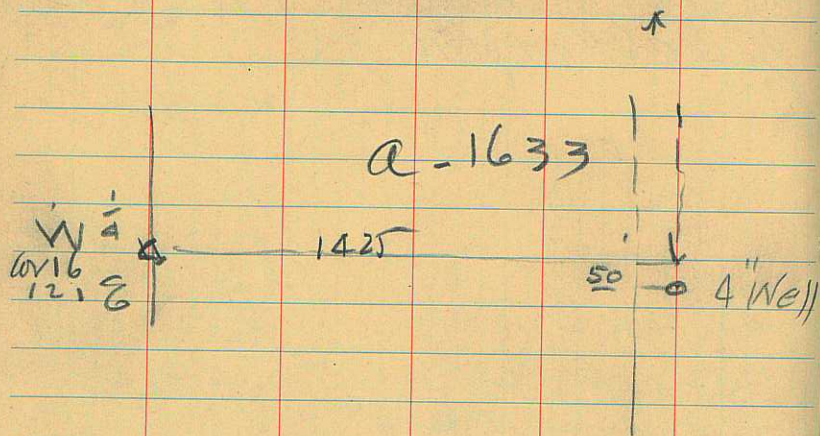 a-1633
W 1/4
Cor 16
1425
50'
4" Well